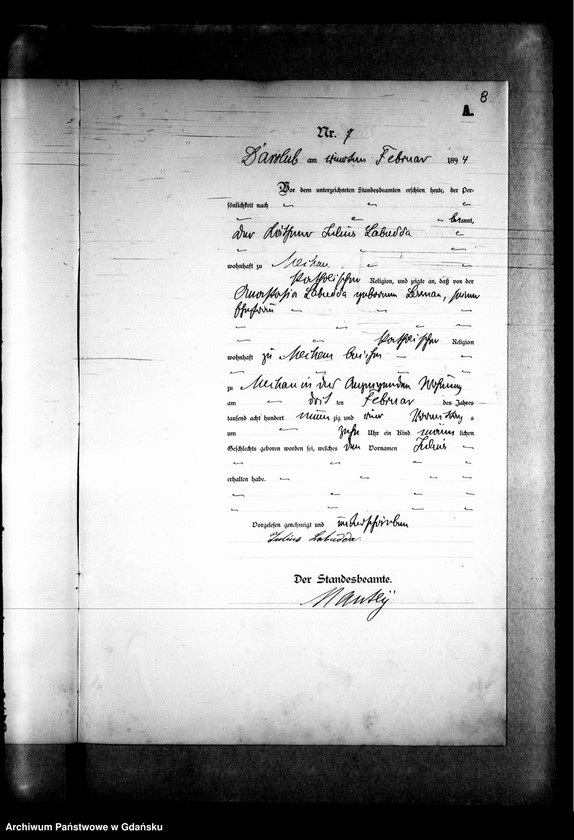 8
A.
Nr. 7
Darslub am vierten Februar 1894
Vor dem unterzeichneten Standesbeamten erschien heute, der Per-
sönlichkeit nach
bekannt,
der Käthner Julius Labudda
wohnhaft zu Mechau
katholischer Religion, und zeigte an, daß von der
Anastasia Labudda geborenen, seiner
Ehefrau
katholischer Religion
wohnhaft zu Mechau bei ihm
zu Mechau in der Wohnung
am dritten Februar des Jahres
tausend acht hundert neunzig und vier Vormittags
um zehn Uhr ein Kind männlichen
Geschlechts geboren worden sei, welches den Vornamen Julius
erhalten habe.
Vorgelesen genehmigt und unterschrieben
Julius Labudda
Der Standesbeamte.
Archiwum Państwowe w Gdańsku